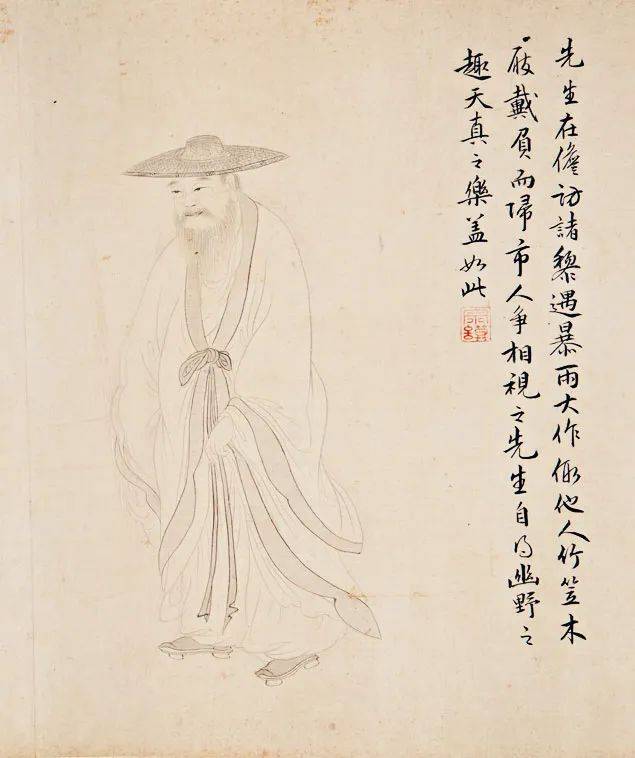 先生在儋訪諸黎遇暴雨大作假他人竹笠木
屐戴負而歸市人爭相視之先生自得幽野之
趣天真之樂蓋如此